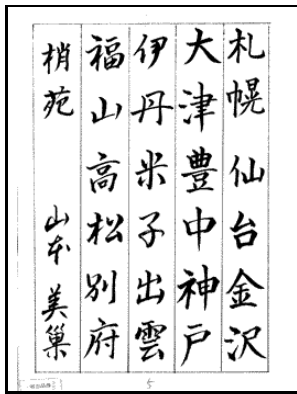 札幌仙台金沢
大津豊中神戸
伊丹米子出雲
福山高松別府
梢苑 山本美巢
5